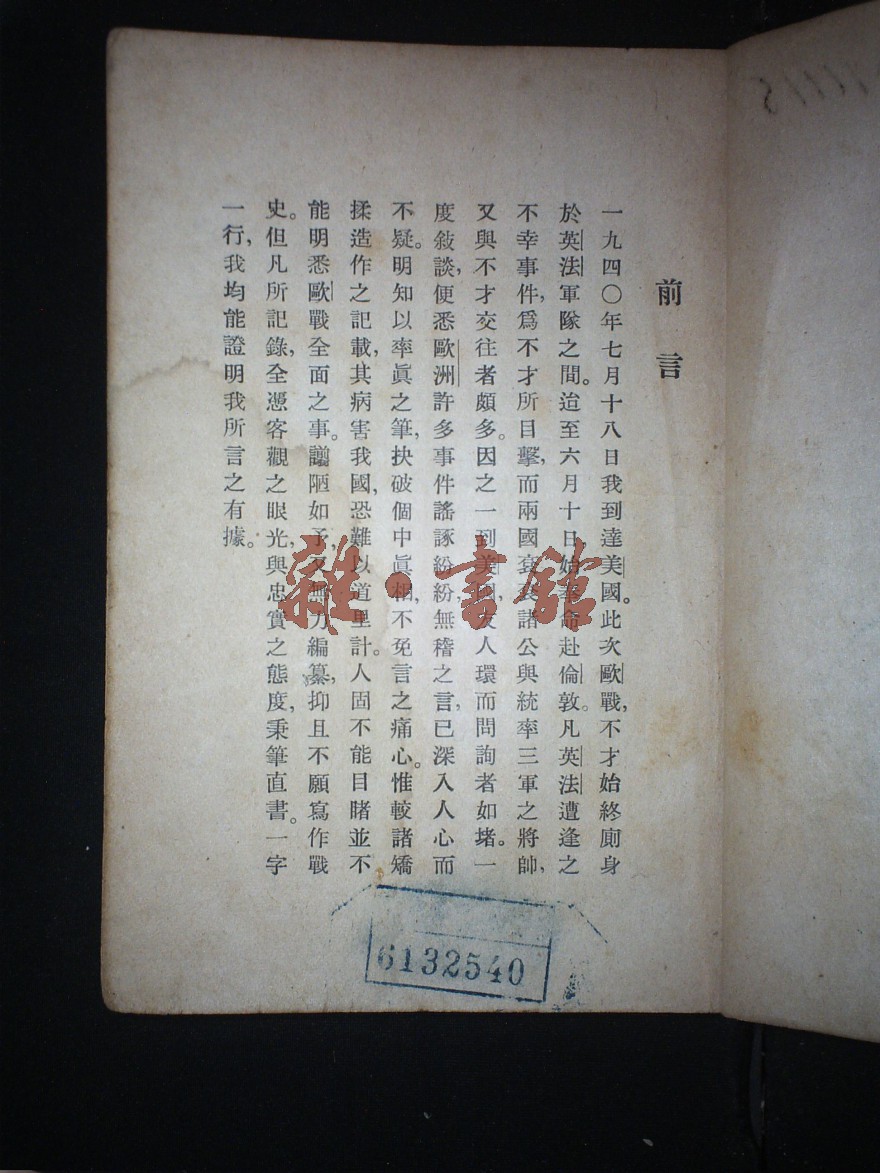 前言
一九四〇年七月十八日我到達美國。此次歐戰，不才始終廁身
於英法軍隊之間。迨至六月十日，始奉命赴倫敦。凡英法遭逢之
不幸事件，爲不才所目擊，而兩國袞袞諸公與統率三軍之將帥，
又與不才交往者頗多。因之一到美國，友人環而問詢者如堵。一
度敍談，便悉歐洲許多事件謠諑紛紛，無稽之言，已深入人心而
不疑。明知以率眞之筆，抉破個中眞相，不免言之痛心。惟較諸矯
揉造作之記載，其病害我國，恐難以道里計。人固不能目賭並不
能明悉歐戰全面之事。譾陋如予，又無力編纂，抑且不願寫作戰
史。但凡所記錄，全憑客觀之眼光，與忠實之態度，秉筆直書。一字
一行，我均能證明我所言之有據。
雜·書館
6132540